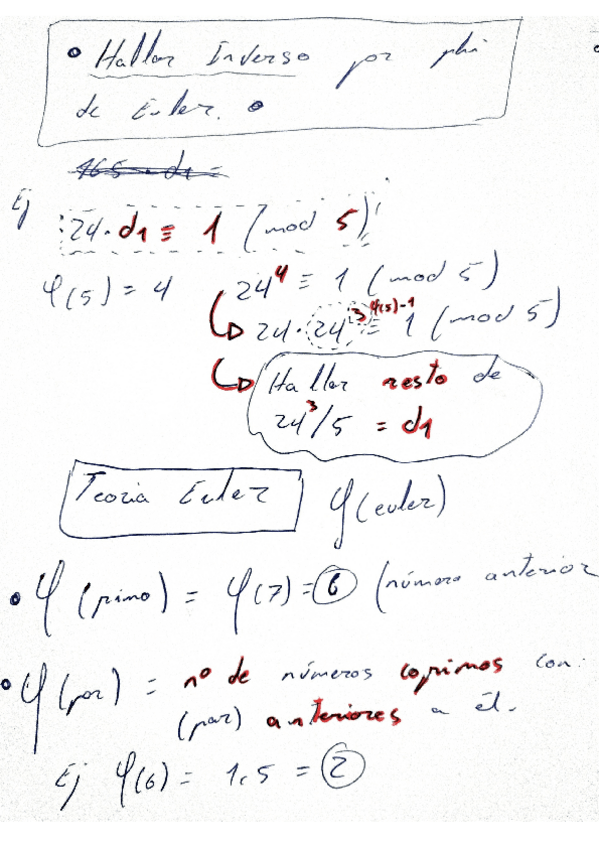 • Hallar Inverso por phi
de Euler. •
165 · d1 =
Ej
24 · d1 ≡ 1 (mod 5)
φ(5) = 4 24^4 ≡ 1 (mod 5)
24 · 24^3^φ(5)-1 ≡ 1 (mod 5)
Hallar resto de
24^3/5 = d1
Teoria Euler φ(euler)
• φ(primo) = φ(7) = 6 (número anterior
• φ(par) = nº de números coprimos con:
(par) anteriores a él.
Ej φ(6) = 1,5 = 2